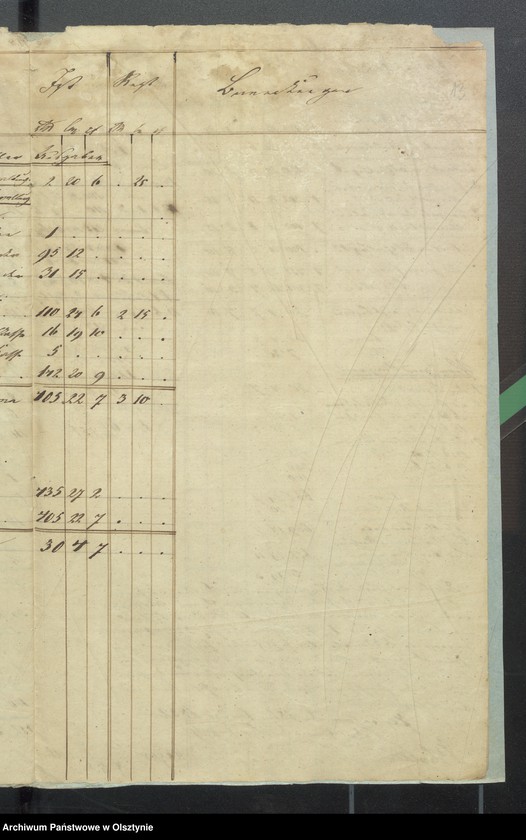 Ist Rest Bemerkungen 13
Ausgaben
2 20 6 . 25 .
1 . . . . .
95 12 . . . .
31 15 . . . .
110 24 6 2 15 .
16 19 10 . . .
5 . . . . .
142 20 9 . . .
405 22 7 3 10 .
435 27 2 . . .
405 22 7 . . .
30 4 7 . . .
Archiwum Państwowe w Olsztynie